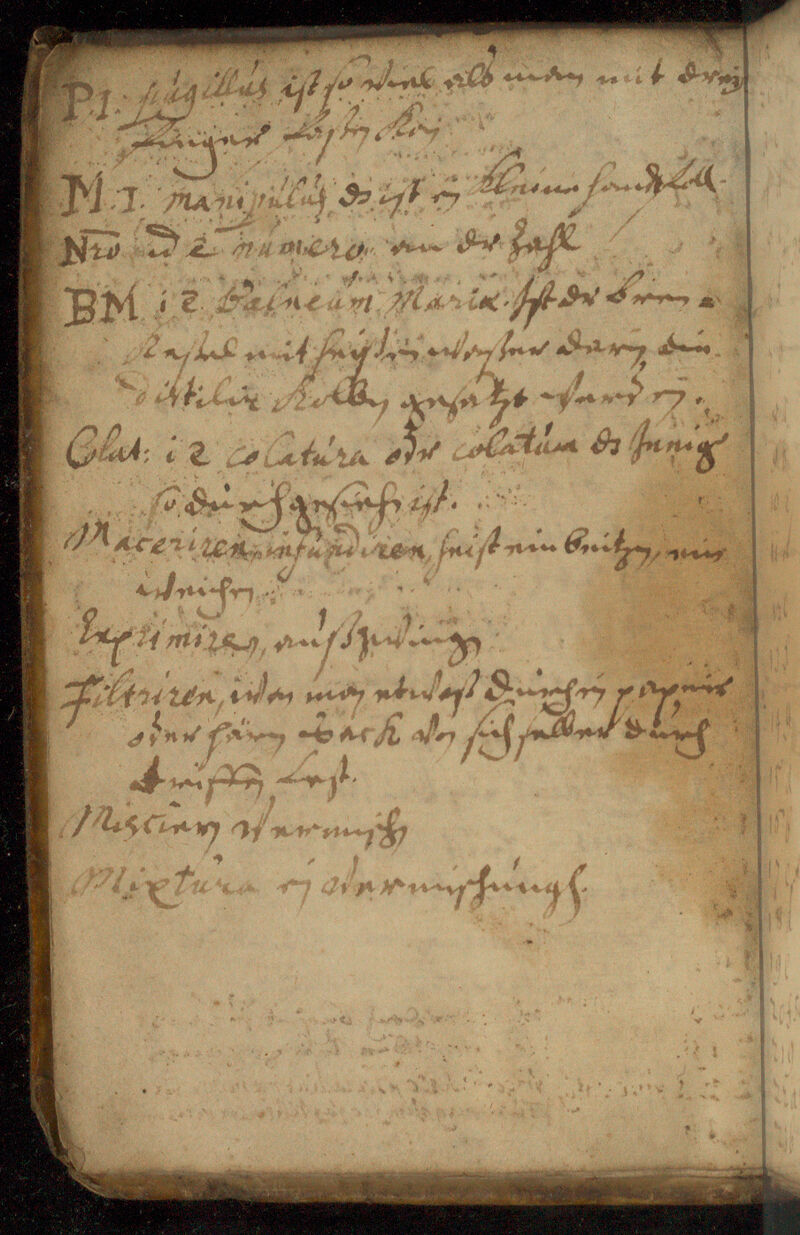 P. 1. pugillus ist so viel als man mit dreÿ
finger fasen kan
M. 1. manipulus ds ist ein kleine handtfoll
Nro id e numero an der Zahl
BM i e balneum Mariæ. Ist der bren=
Kessel mit heissen wasser darin ein
distilir kolben gesatzt werden.
Colat: i e colatura oder colatum ds Jenige
so durchgesiehen ist.
Maceriren, infundiren, heist ein beitzen, ein
weichen
Exprimiren, außzwingen
Filtriren, wen man etwaß durch ein papeir
oder härin sack von sich selber durch
trieffen lest.
Miscieren vermischen
Mixtura ein vermischungh.